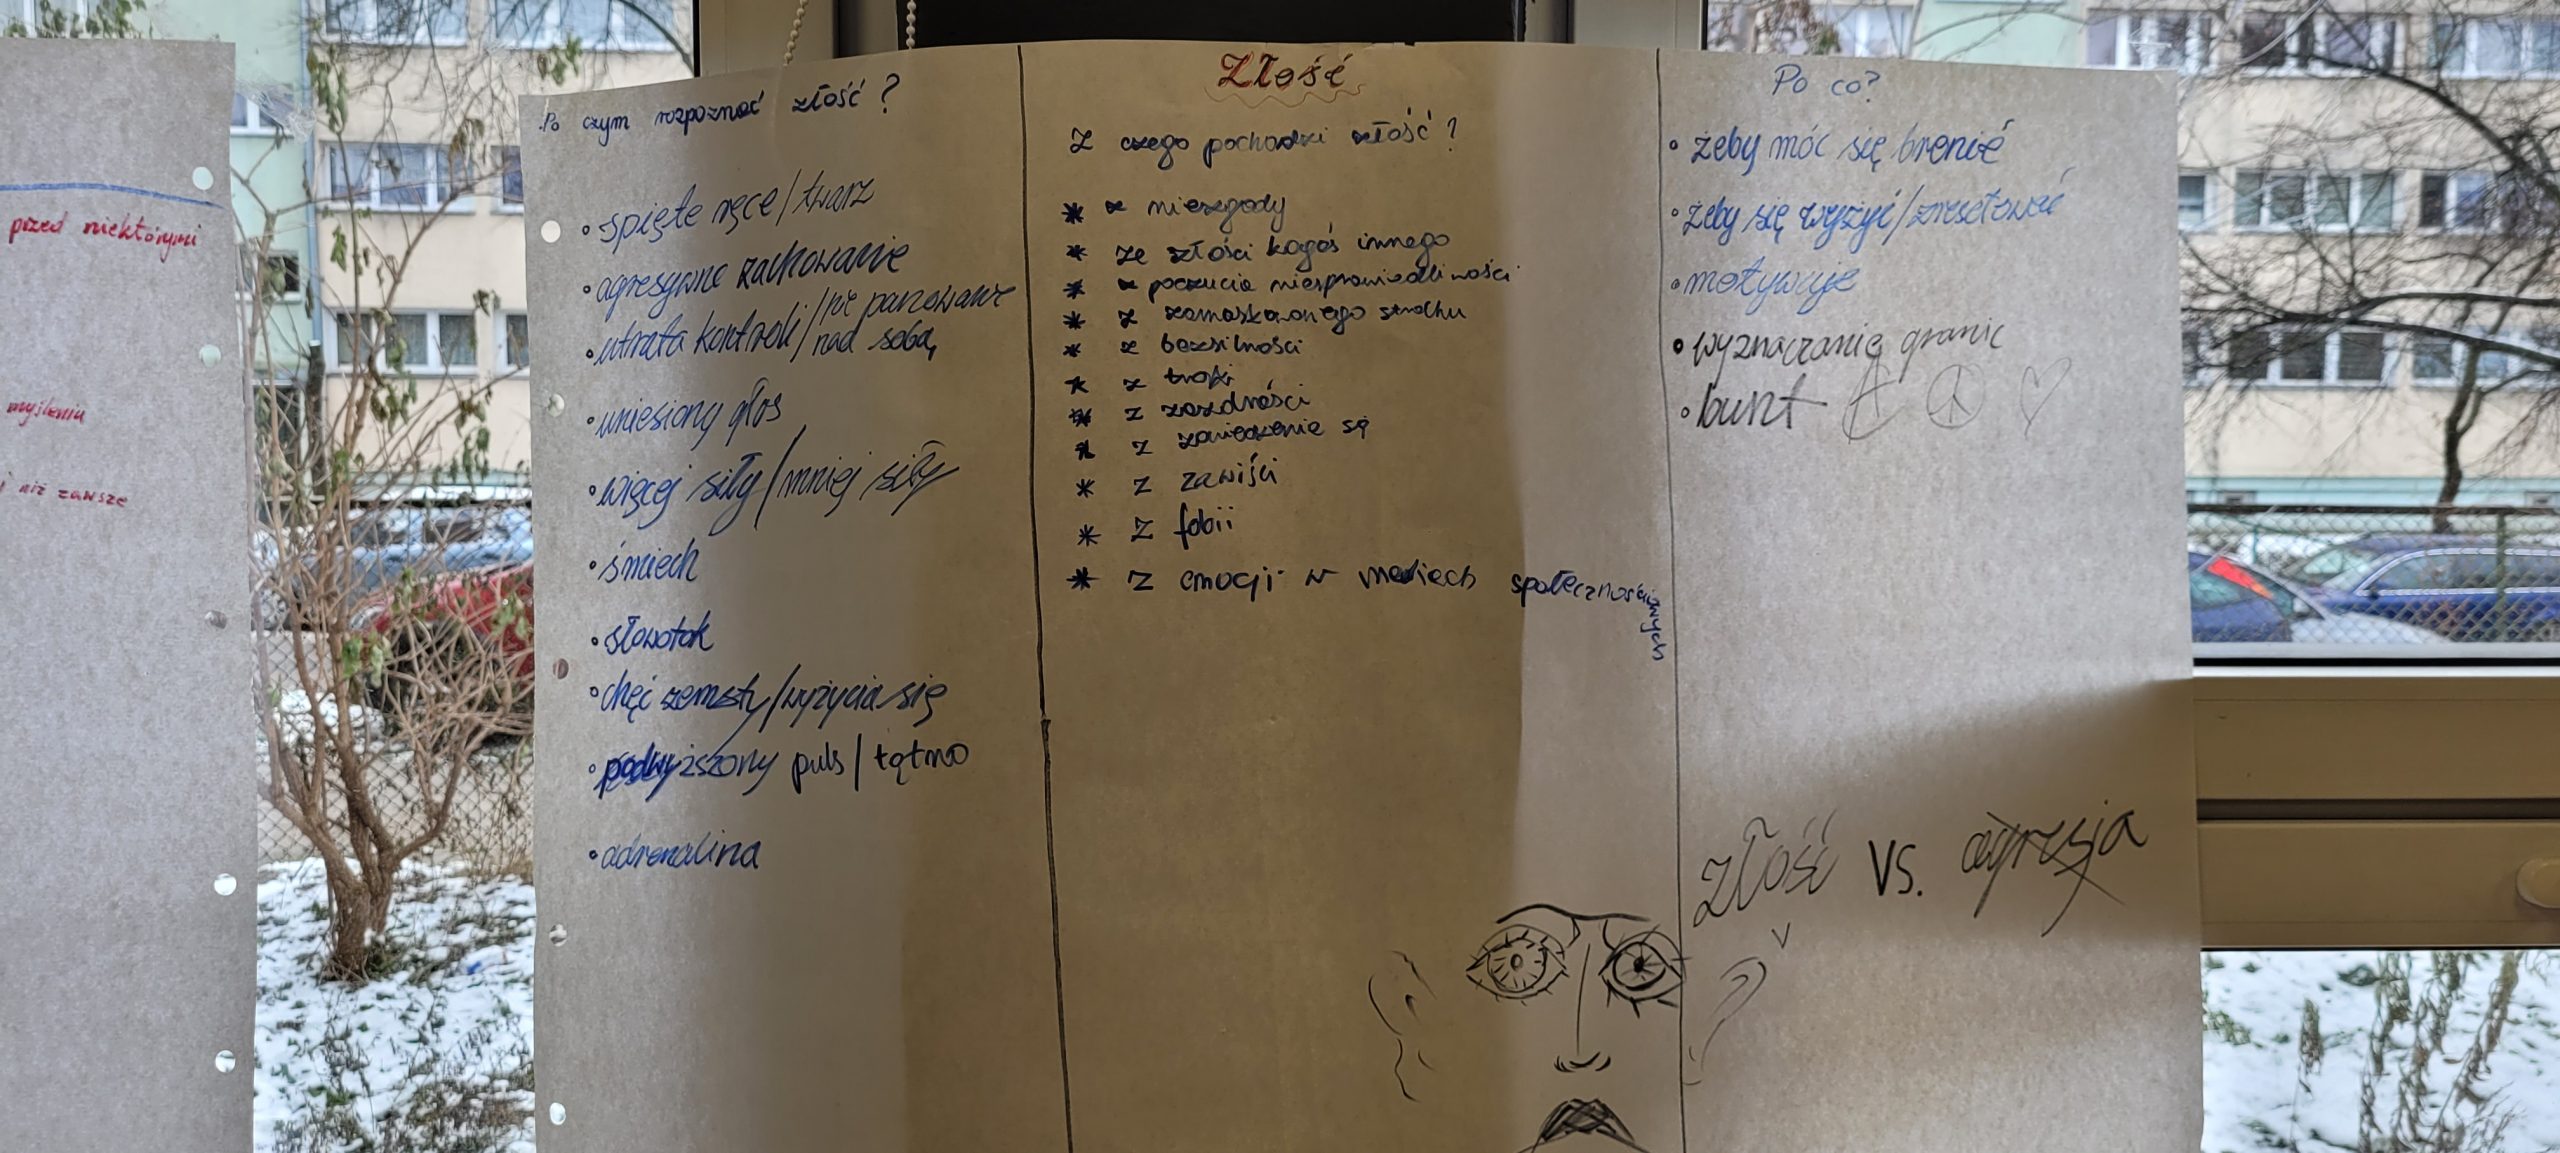 przed niektórymi
myśleniu
i niż zawsze
Po czym rozpoznać złość?
• spięte ręce/twarz
• agresywne zachowanie
• utrata kontroli/nie panowanie nad sobą
• uniesiony głos
• więcej siły/mniej siły
• śmiech
• słowotok
• chęć zemsty/wyżycia się
• podwyższony puls/tętno
• adrenalina
Złość
Z czego pochodzi złość?
* z niezgody
* ze złości kogoś innego
* z poczucia niesprawiedliwości
* z zamaskowanego strachu
* z bezsilności
* z troski
* z zazdrości
* z
* z zawiści
* z fobii
* z emocji w mediach społecznościowych
Po co?
• żeby móc się bronić
• żeby się wyżyć/zresetować
• motywuje
• wyznaczanie granic
• bunt
złość vs. agresja